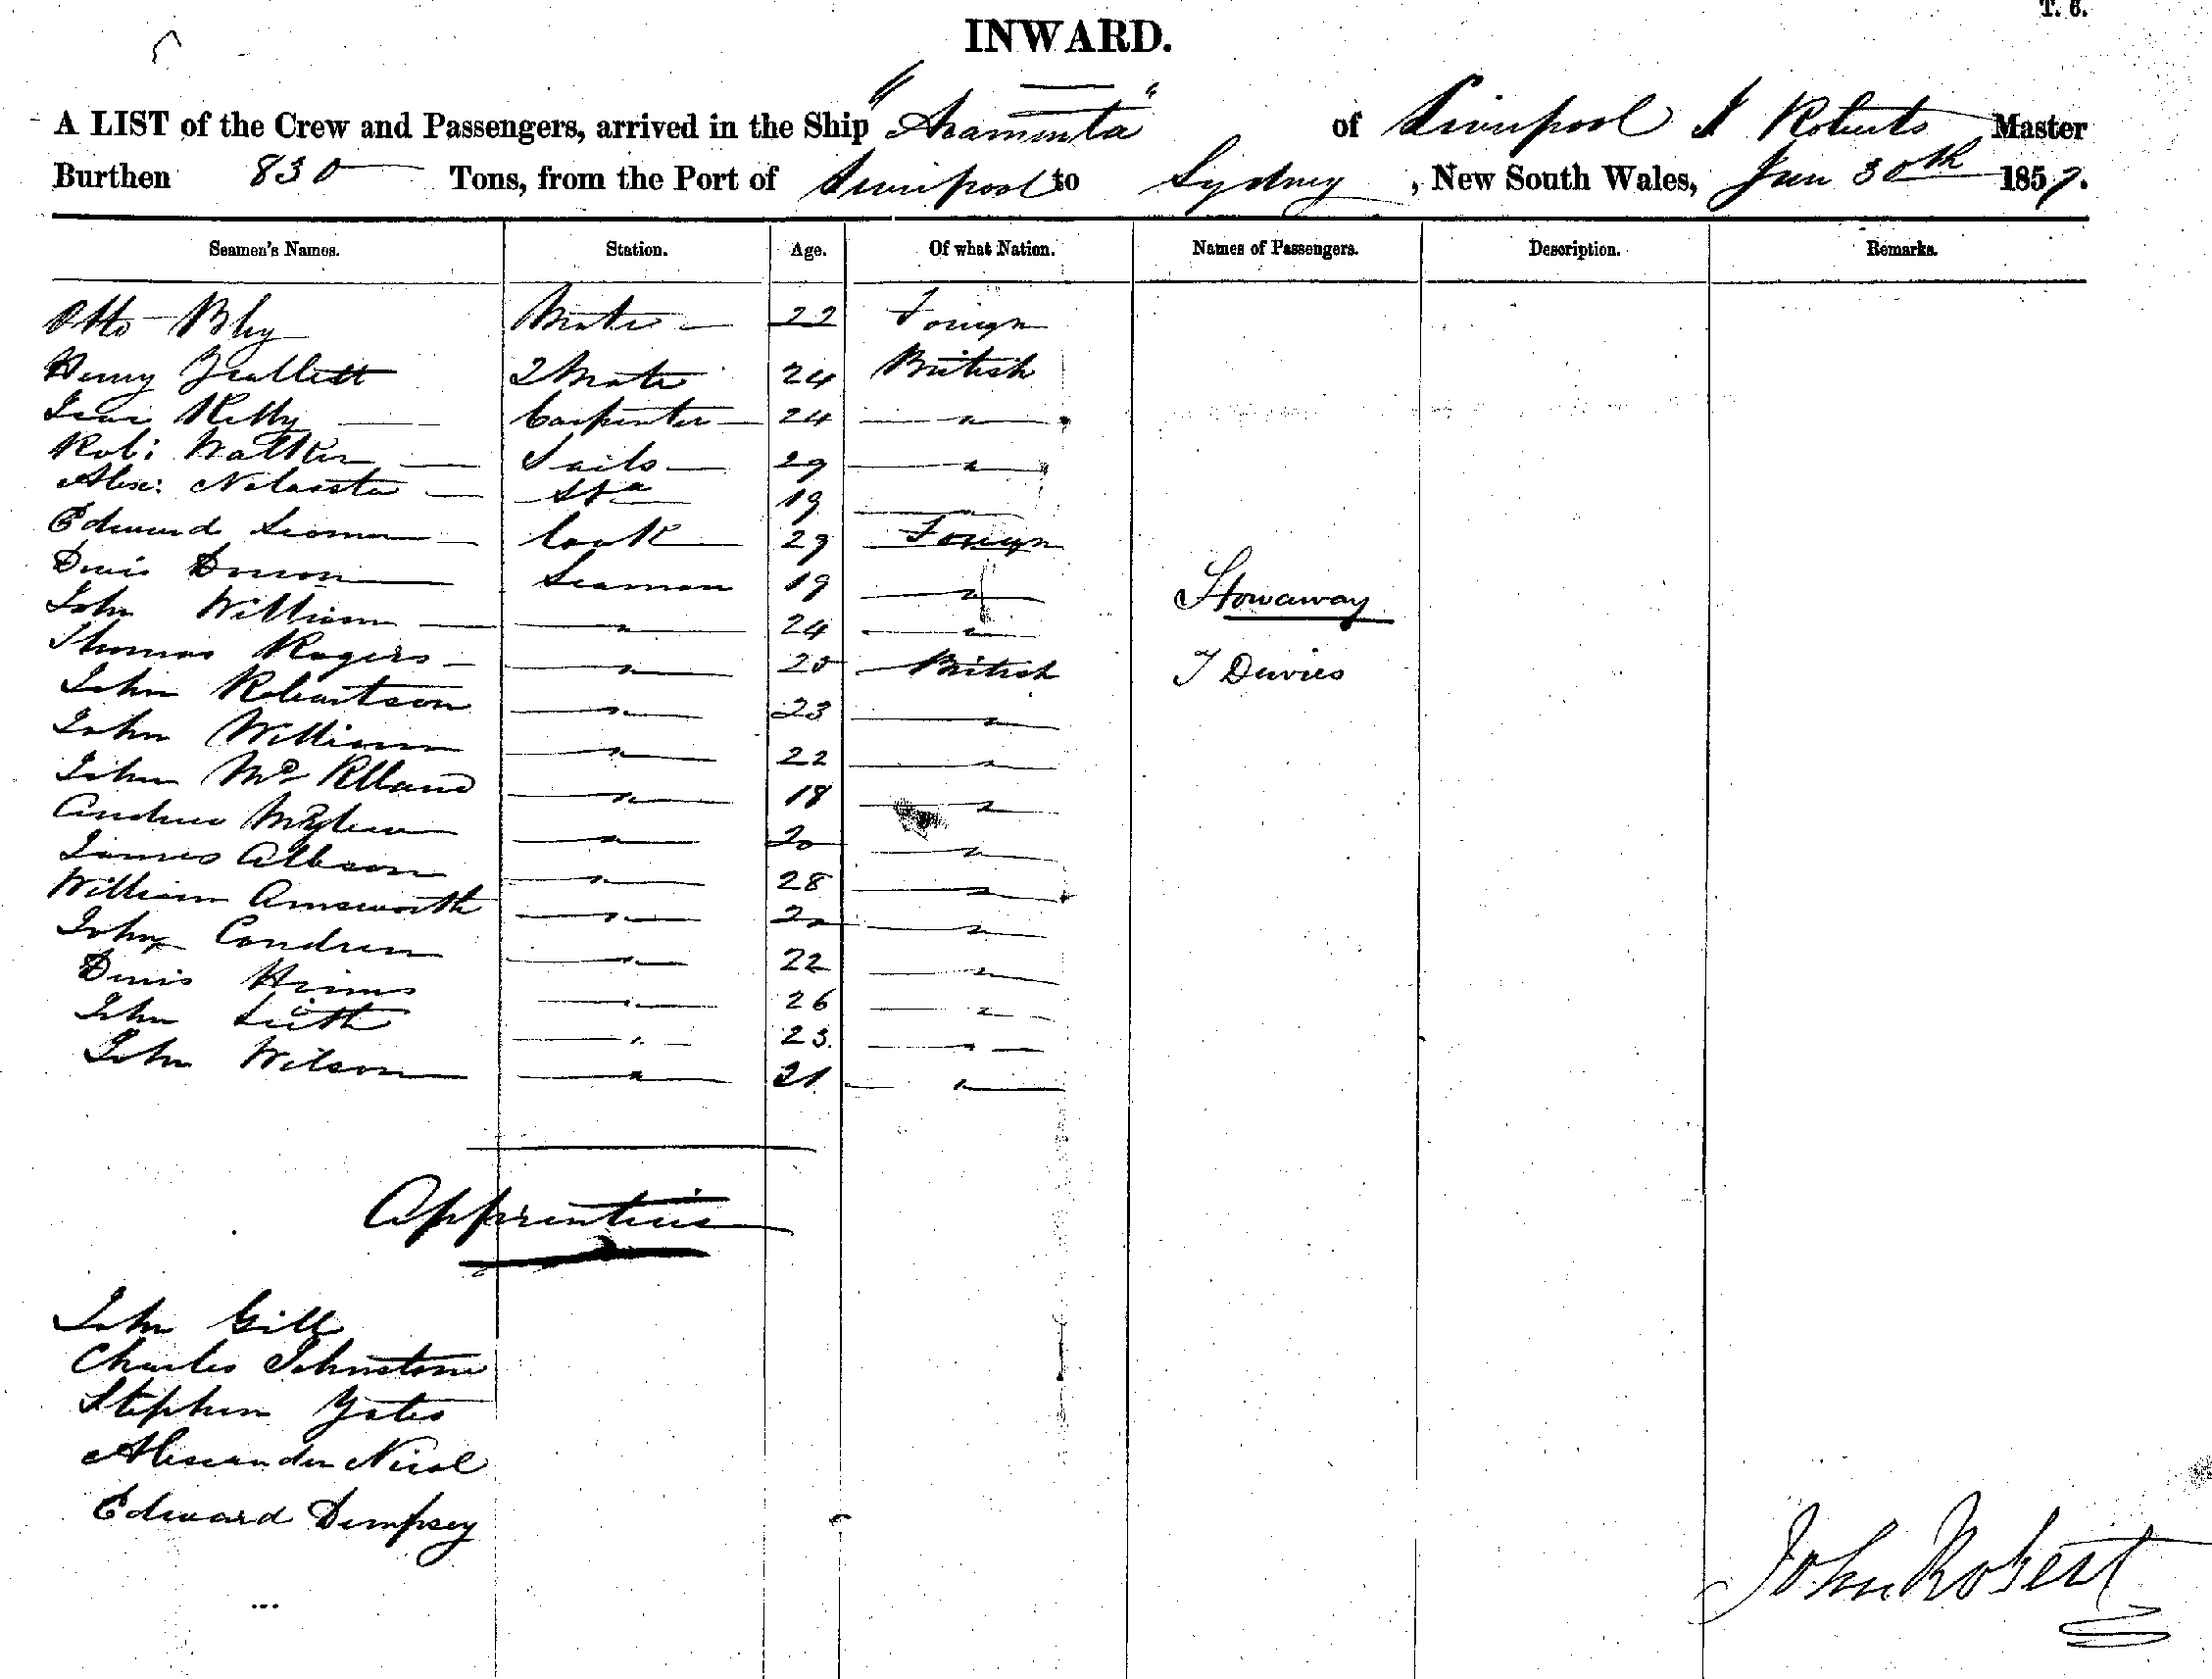 T. 6.
INWARD.
A LIST of the Crew and Passengers, arrived in the Ship "Araminta" of Liverpool J Roberts Master
Burthen 830 Tons, from the Port of Liverpool to Sydney, New South Wales, Jan 30th 1857.
Seamen's Names. Station. Age. Of what Nation. Names of Passengers. Description. Remarks.
Otto Bley Mate 22 Foreign
Henry 2 Mate 24 British
Isaac Kelly Carpenter 24 "
Rob: Walker Sails 29 "
Alex: 19
Edward Cook 29 Foreign
Denis Seaman 19 "
Stowaway
John William " 24 "
Thomas Rogers " 20 British
T Davies
John Robertson " 23 "
John William " 22 "
John " 18 "
Andrew " 20 "
James " 28 "
William Ainsworth " 20 "
John Condren " 22 "
Denis " 26 "
John Leith " 23 "
John Wilson " 21 "
Apprentices
John Gill
Charles Johnstone
Stephen Yates
Alexander Nicol
Edward Dempsey
...
John Robert